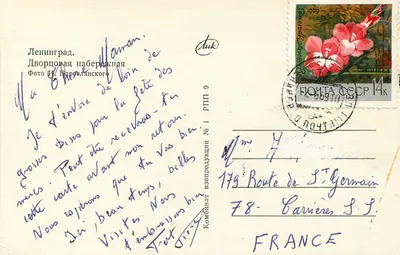 Ленинград.
Дворцовая набережная
Фото И.
Ma chère Maman.
Je t'envoie de loin de
gros bisous pour la fête des
mères. Peut être recevras-tu
cette carte avant mon retour.
Nous espérons que tu vas bien
Ici, beau temps, belles
visites. Nous
t'embrassons bien
Комбинат изопродукции № 1 РПП 9
ПОЧТА СССР 14к
Mme
179 Route de St Germain
78 - Carrières S.S.
FRANCE